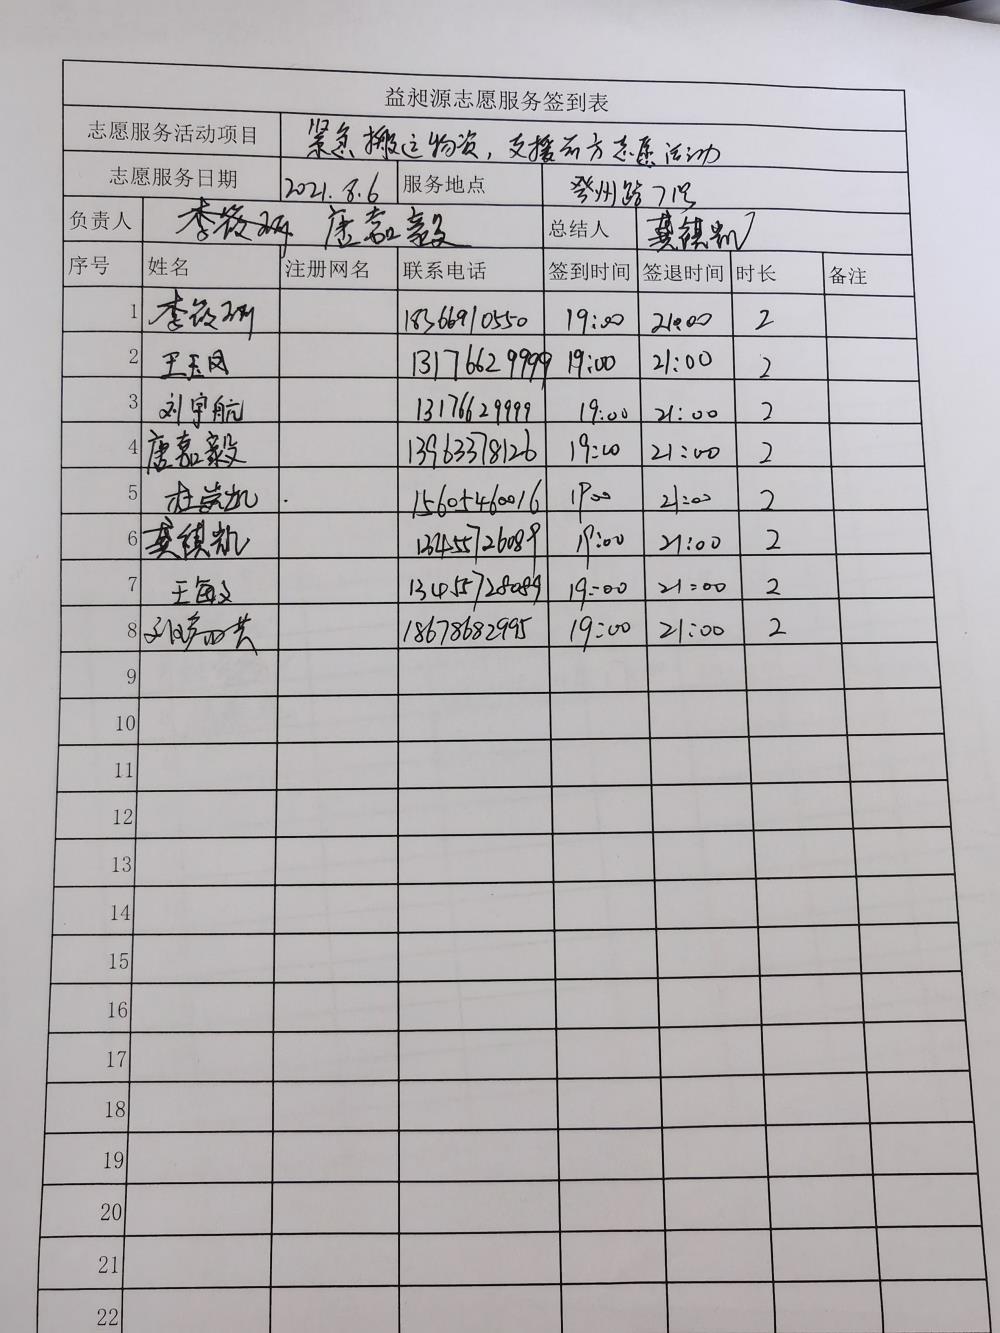 益昶源志愿服务签到表
志愿服务活动项目 紧急搬运物资，支援前方志愿活动
志愿服务日期 2021.8.6 服务地点 登州路71号
负责人 李筱珂 唐嘉毅 总结人 龚镇凯
序号 姓名 注册网名 联系电话 签到时间 签退时间 时长 备注
1 李筱珂 18366910550 19:00 21:00 2
2 王玉凤 13176629999 19:00 21:00 2
3 刘宇航 13176629999 19:00 21:00 2
4 唐嘉毅 13963378126 19:00 21:00 2
5 杜崇凯 15605460016 19:00 21:00 2
6 龚镇凯 13455726089 19:00 21:00 2
7 王敏 13455728089 19:00 21:00 2
8 18678682995 19:00 21:00 2
9
10
11
12
13
14
15
16
17
18
19
20
21
22